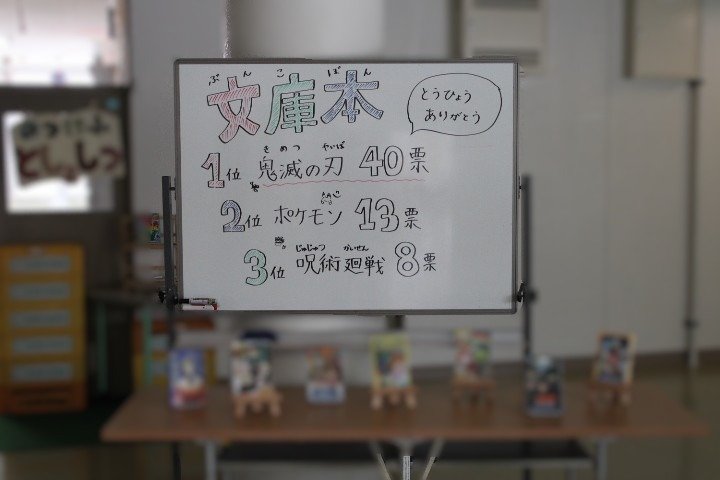 ぶんこぼん
文庫本
とうひょう
ありがとう
きめつ やいば
1位 鬼滅の刃 40票
2位 ポケモン 13票
じゅじゅつ かいせん
3位 呪術廻戦 8票
としょしつ